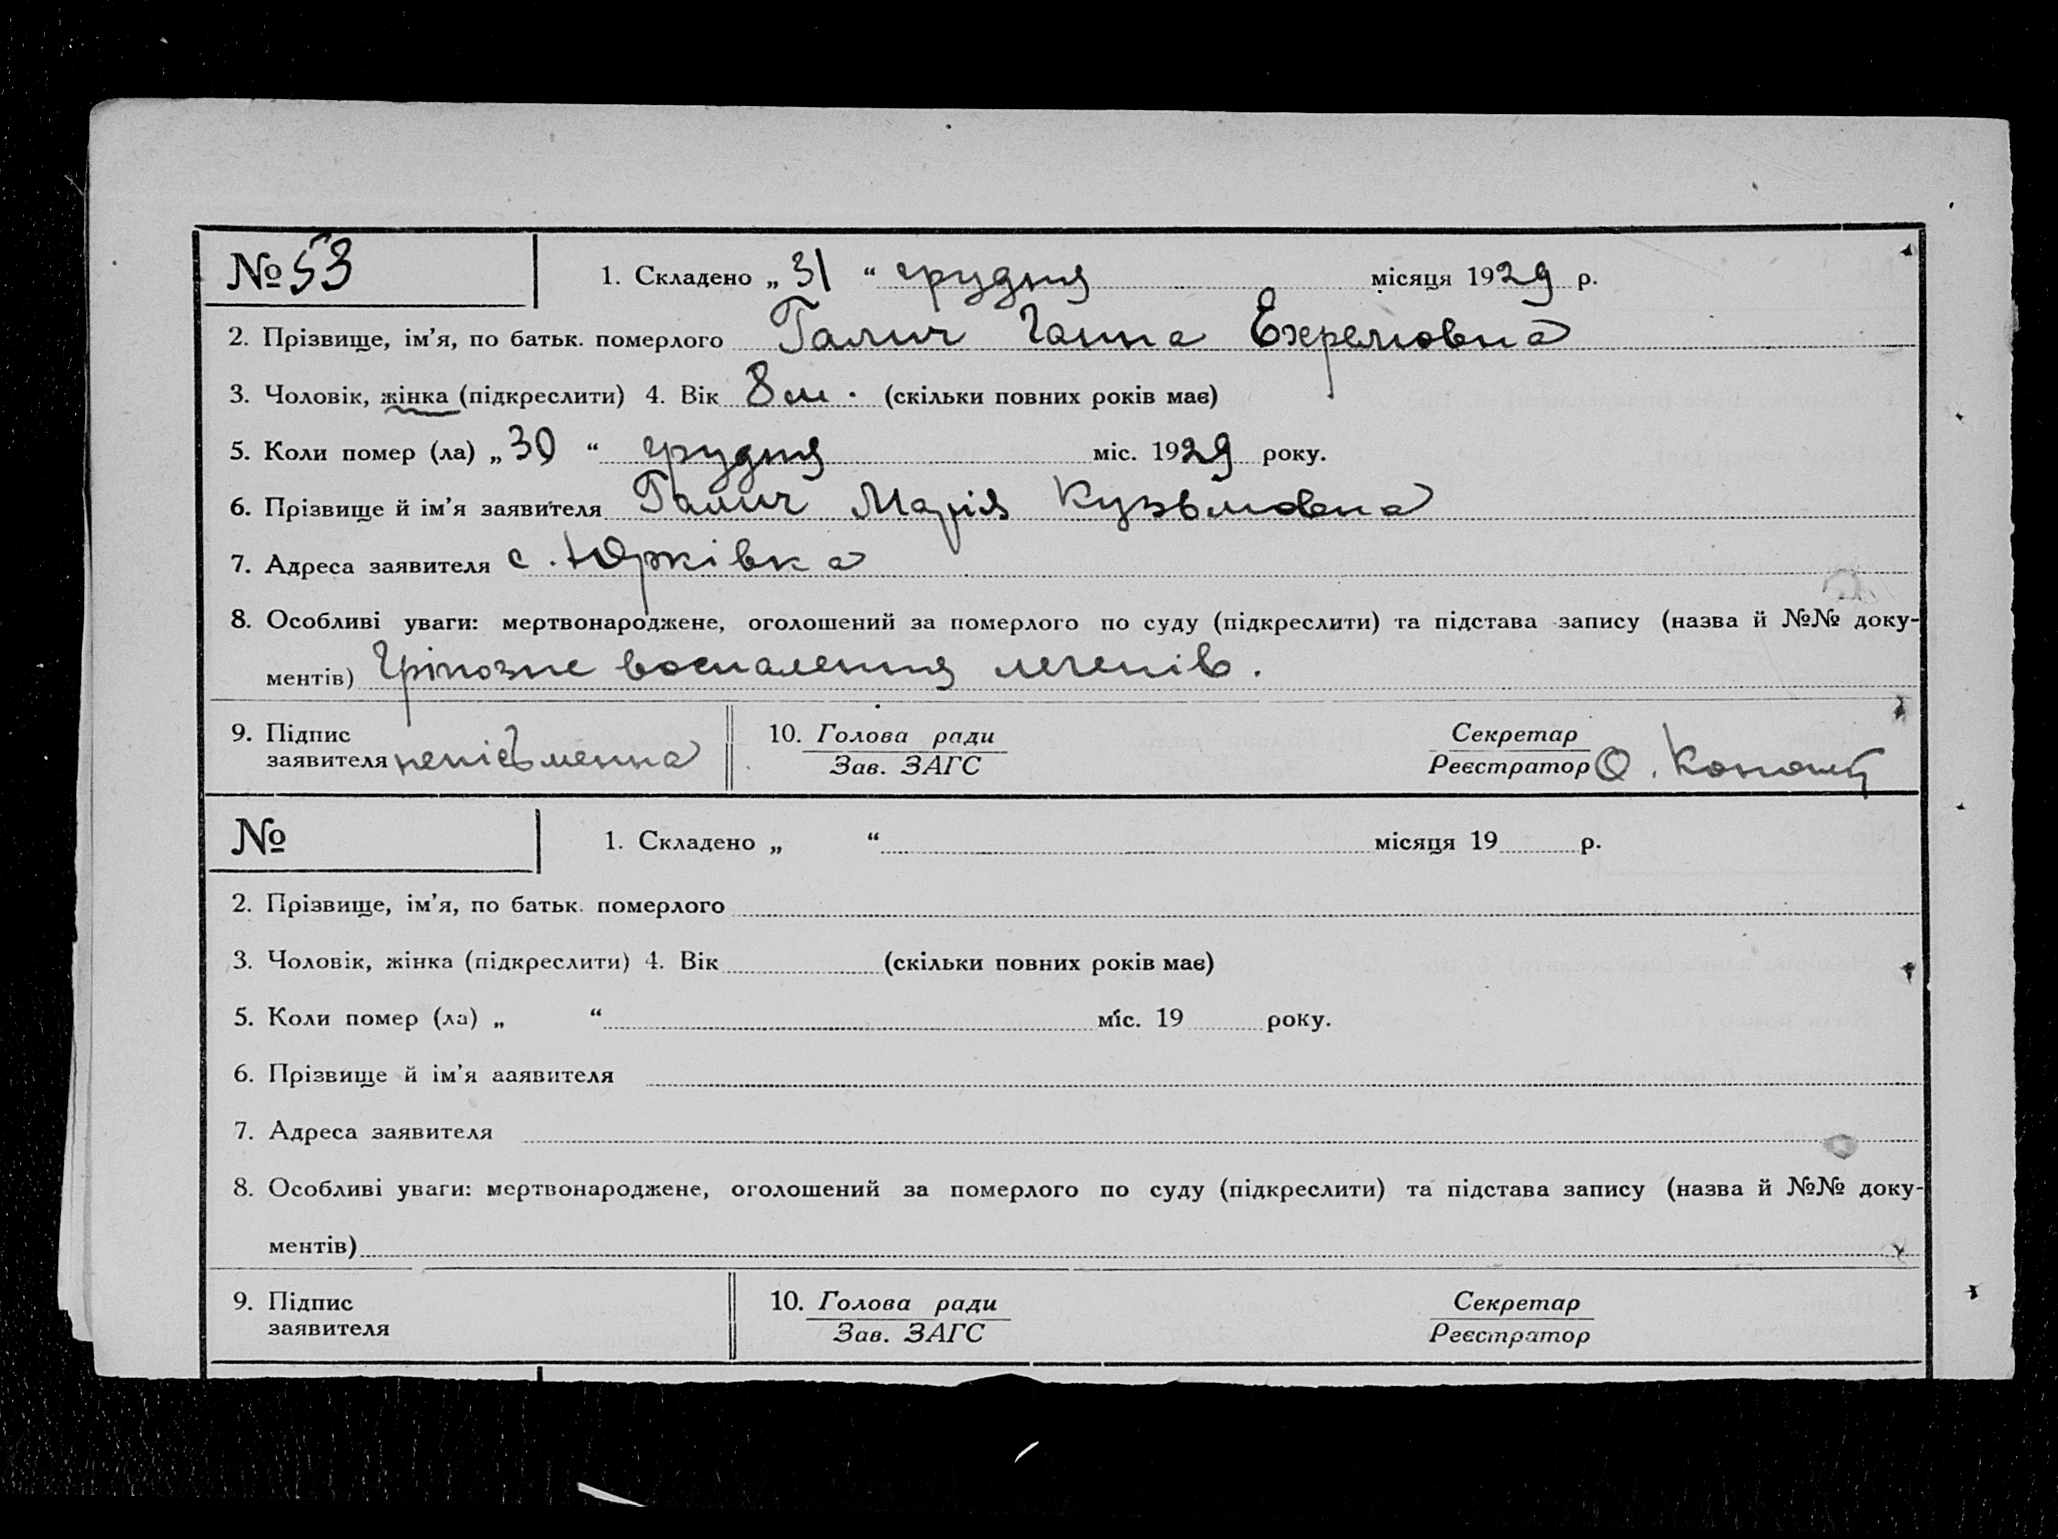 № 53 1. Складено „ 31 “ грудня місяця 1929 р.
2. Прізвище, ім’я, по батьк. померлого Галич Ганна Ехремовна
3. Чоловік, жінка (підкреслити) 4. Вік 8 м. (скільки повних років має)
5. Коли помер (ла) „ 30 “ грудня міс. 1929 року.
6. Прізвище й ім’я заявителя Галич Марія Кузьмовна
7. Адреса заявителя с. Юрківка
8. Особливі уваги: мертвонароджене, оголошений за померлого по суду (підкреслити) та підстава запису (назва й №№ доку-
ментів) Гріпозне воспалення легенів.
9. Підпис заявителя непісьменна 10. Голова ради Зав. ЗАГС Секретар Реєстратор О.
№ 1. Складено „ “ місяця 19 р.
2. Прізвище, ім’я, по батьк. померлого
3. Чоловік, жінка (підкреслити) 4. Вік (скільки повних років має)
5. Коли помер (ла) „ “ міс. 19 року.
6. Прізвище й ім’я ааявителя
7. Адреса заявителя
8. Особливі уваги: мертвонароджене, оголошений за померлого по суду (підкреслити) та підстава запису (назва й №№ доку-
ментів)
9. Підпис заявителя 10. Голова ради Зав. ЗАГС Секретар Реєстратор